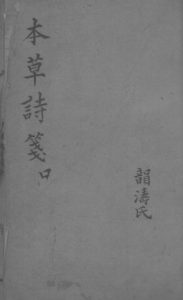 本草詩箋口
韻濤氏